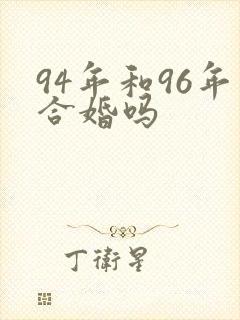 94年和96年
合婚吗
丁衛星